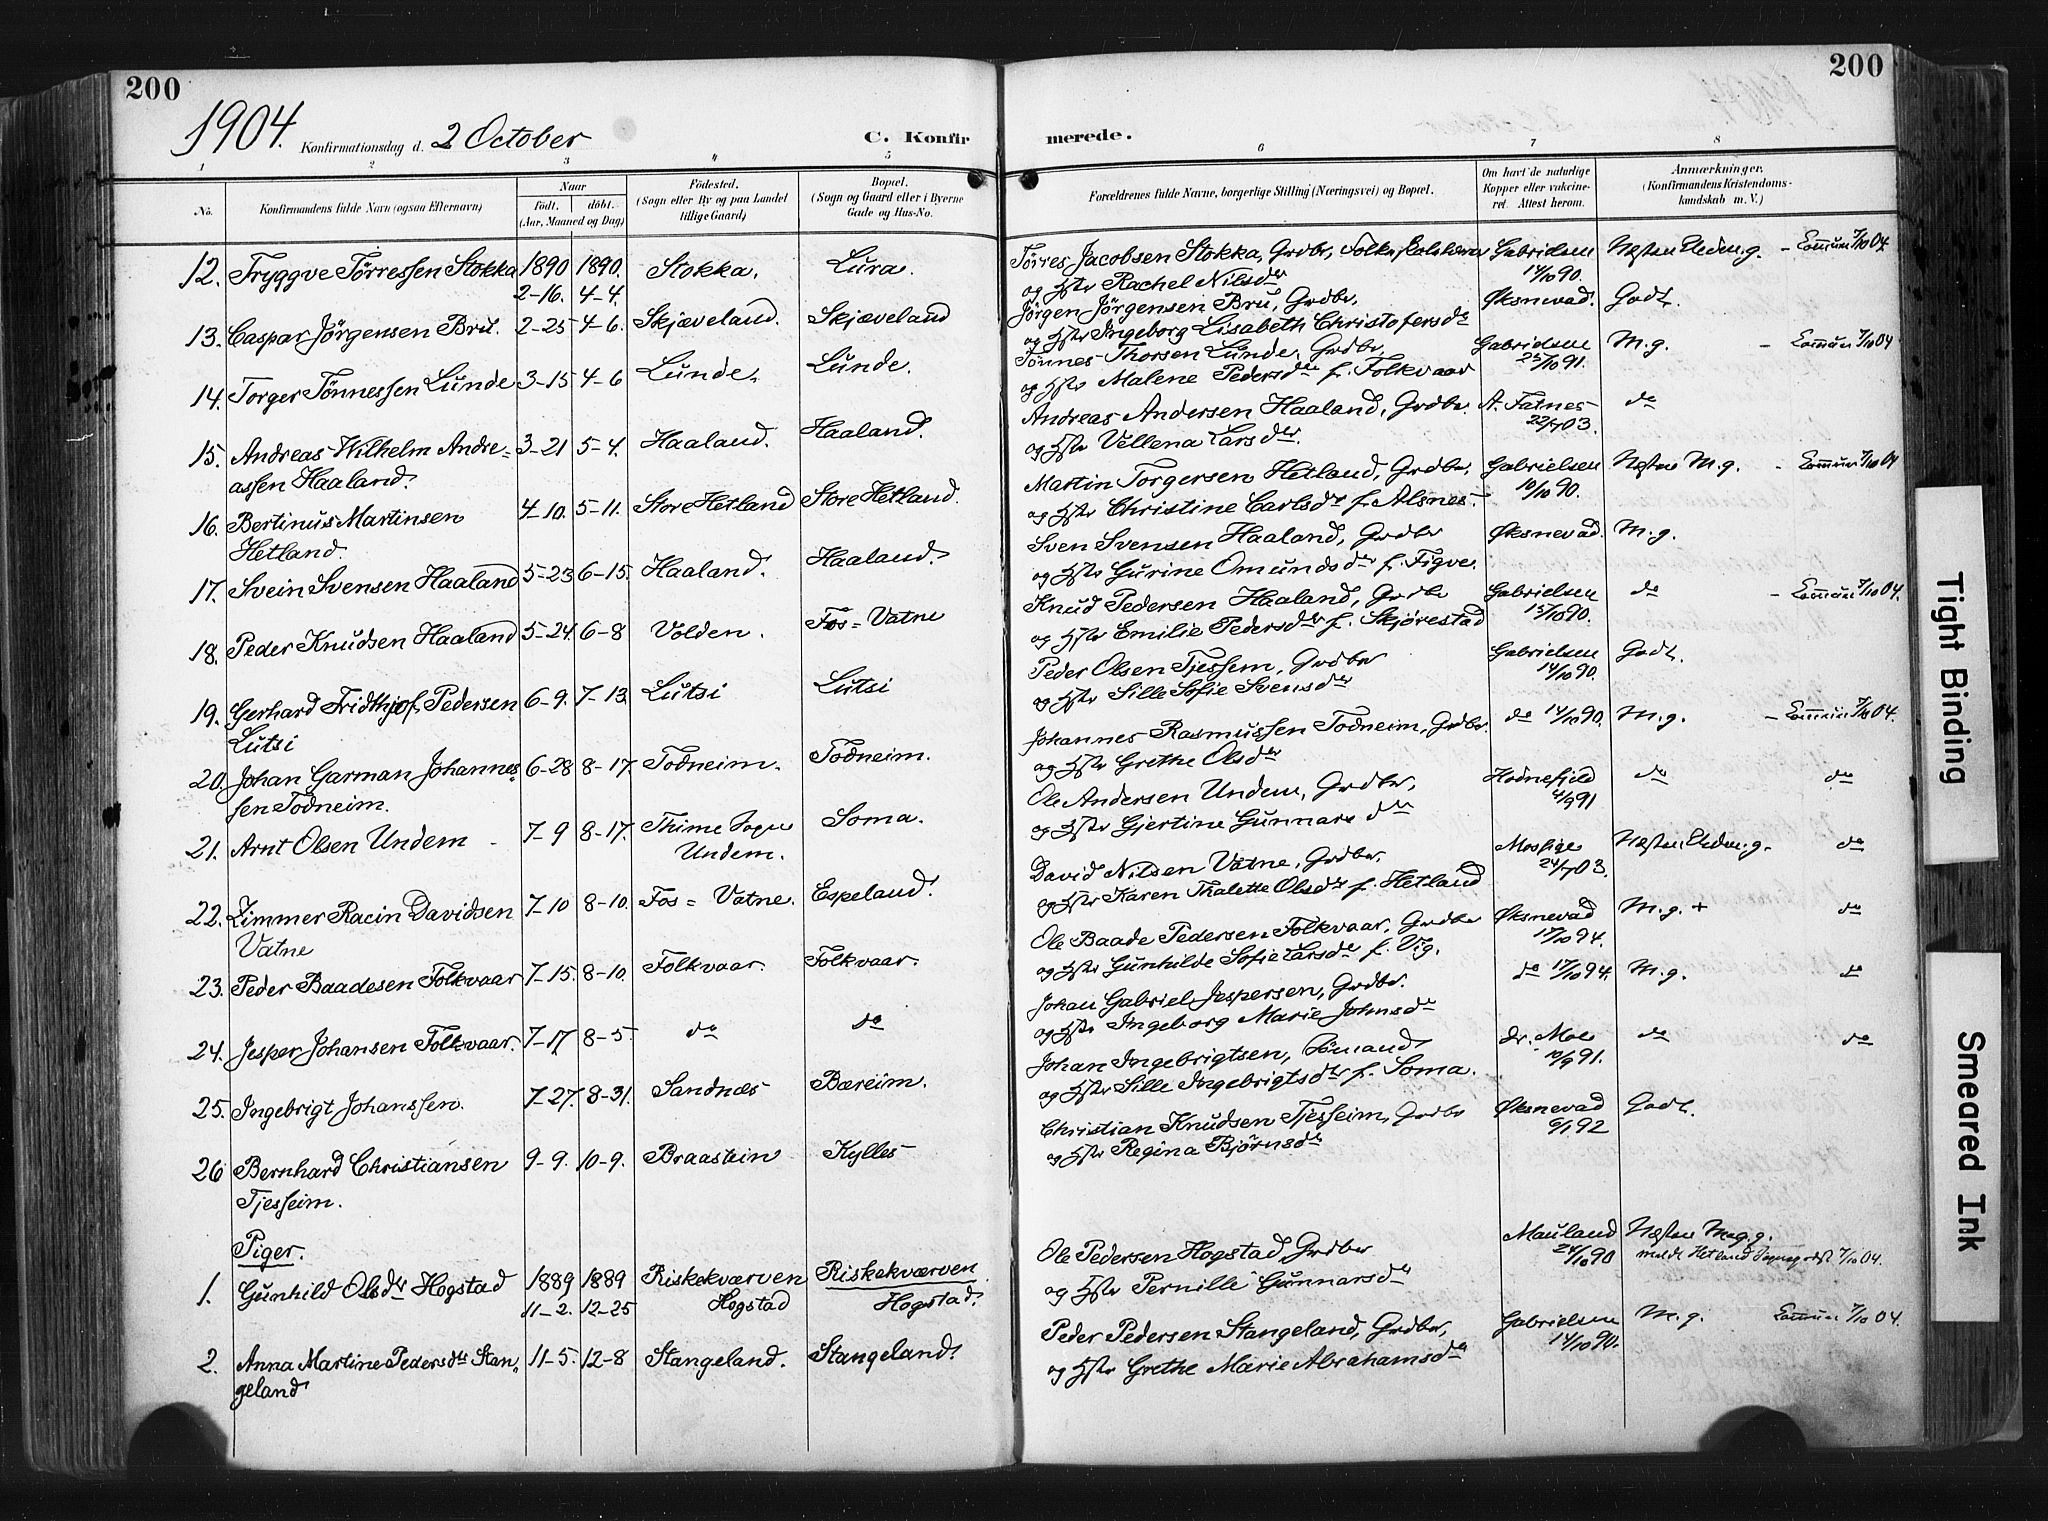 200
200
1904. Konfirmationsdag d. 2 October
C. Konfir merede.
1 2 3 4 5 6 7 8
No. Konfirmandens fulde Navn (ogsaa Efternavn) Naar Født. døbt. (Aar, Maaned og Dag) Fødested. (Sogn eller By og paa Landet tillige Gaard) Bopæl. (Sogn og Gaard eller i Byerne Gade og Hus-No. Forældrenes fulde Navne, borgerlige Stilling (Næringsvei) og Bopæl. Om havt de naturlige Kopper eller vakcineret. Attest herom. Anmærkninger. (Konfirmandens Kristendomskundskab m. V.)
12. Tryggve Tørressen Stokka 1890 2-16. 1890. 4-4. Stokka. Lura. Tørres Jacobsen Stokka, Grdbr, og Hstr Rachel Nilsdr Gabrielsen 14/10 90. Næsten Udm.g. - Commun 7/10 04
13. Caspar Jörgensen Bru. 2-25 4-6. Skjæveland. Skjæveland Jörgen Jörgensen Bru, Grdbr, og Hstr Ingeborg Lisabeth Christofersdr Øksnevad. Godt.
14. Torger Tönnessen Lunde 3-15 4-6 Lunde. Lunde. Tönnes Thorsen Lunde, Grdbr, og Hstr Malene Pedersdr f. Folkvaar Gabrielsen 25/10 91. M.g. - Commun 7/10 04
15. Andreas Wilhelm Andreassen Haaland. 3-21 5-4. Haaland. Haaland. Andreas Andersen Haaland, Grdbr. og Hstr Vellena Larsdr. A. Fatnes 22/7 03. do
16. Bertinus Martinsen Hetland. 4-10. 5-11. Store Hetland Store Hetland. Martin Torgersen Hetland, Grdbr, og Hstr Christine Carlsdr f. Alsnes. Gabrielsen 10/10 90. Næsten M.g. - Commun 7/10 04
17. Svein Svensen Haaland 5-23 6-15. Haaland. Haaland. Sven Svensen Haaland, Grdbr og Hstr Gurine Omundsdr f. Figve. Øksnevad. M.g.
18. Peder Knudsen Haaland 5-24. 6-8 Volden. Fos-Vatne Knud Pedersen Haaland, Grdbr og Hstr Emilie Pedersdr f. Skjørestad Gabrielsen 15/10 90. do - Commun 7/10 04.
19. Gerhard Fridthjof Pedersen Lutsi 6-9. 7-13. Lutsi Lutsi Peder Olsen Tjessem, Grdbr og Hstr Sille Sofie Svensdr Gabrielsen 14/10 90. Godt.
20. Johan Garman Johannessen Todneim. 6-28 8-17 Todneim. Todneim. Johannes Rasmussen Todneim, Grdbr. og Hstr Grethe Olsdr do 14/10 90. M.g. - Commun 7/10 04.
21. Arnt Olsen Undem 7-9 8-17. Thime Sogn Undem. Soma. Ole Andersen Undem, Grdbr, og Hstr Gjertine Gunnarsdr Hodnefjeld 4/9 91 do do
22. Zimmer Racin Davidsen Vatne 7-10 8-10. Fos-Vatne. Espeland. David Nilsen Vatne, Grdbr. og Hstr Karen Thalette Olsdr f. Hetland Mossige 24/7 03. Næsten Udm.g. do
23. Peder Baadesen Folkvaar 7-15. 8-10. Folkvaar. Folkvaar. Ole Baade Pedersen Folkvaar, Grdbr og Hstr Gunhilde Sofie Larsdr f. Vig. Øksnevad 17/10 94. M.g. + do
24. Jesper Johansen Folkvaar. 7-17 8-5. do do Johan Gabriel Jespersen, Grdbr. og Hstr Ingeborg Marie Johnsdr do 17/10 94. M.g. do
25. Ingebrigt Johanssen. 7-27. 8-31. Sandnæs Bæreim. Johan Ingebrigtsen, Sømand og Hstr Sille Ingebrigtsdr f. Soma. dr. Moe 10/9 91. do do
26 Bernhard Christiansen Tjesseim. 9-9. 10-9. Braastein Kylles Christian Knudsen Tjesseim, Grdbr og Hstr Regina Bjørnsdr Øksnevad 6/1 92 Godt.
Piger.
1. Gunhild Olsdr Hogstad 1889 11-2. 1889 12-25 Riskekværven Hogstad Riskekværven Hogstad. Ole Pedersen Hogstad, Grdbr og Hstr Pernille Gunnarsdr Mauland 24/10 90 Næsten M.g. 7/10 04.
2. Anna Martine Pedersdtr Stangeland 11-5. 12-8 Stangeland. Stangeland. Peder Pedersen Stangeland, Grdbr, og Hstr Grethe Marie Abrahamsdr Gabrielsen 14/10 90. M.g. Commun 7/10 04.
Tight Binding
Smeared Ink